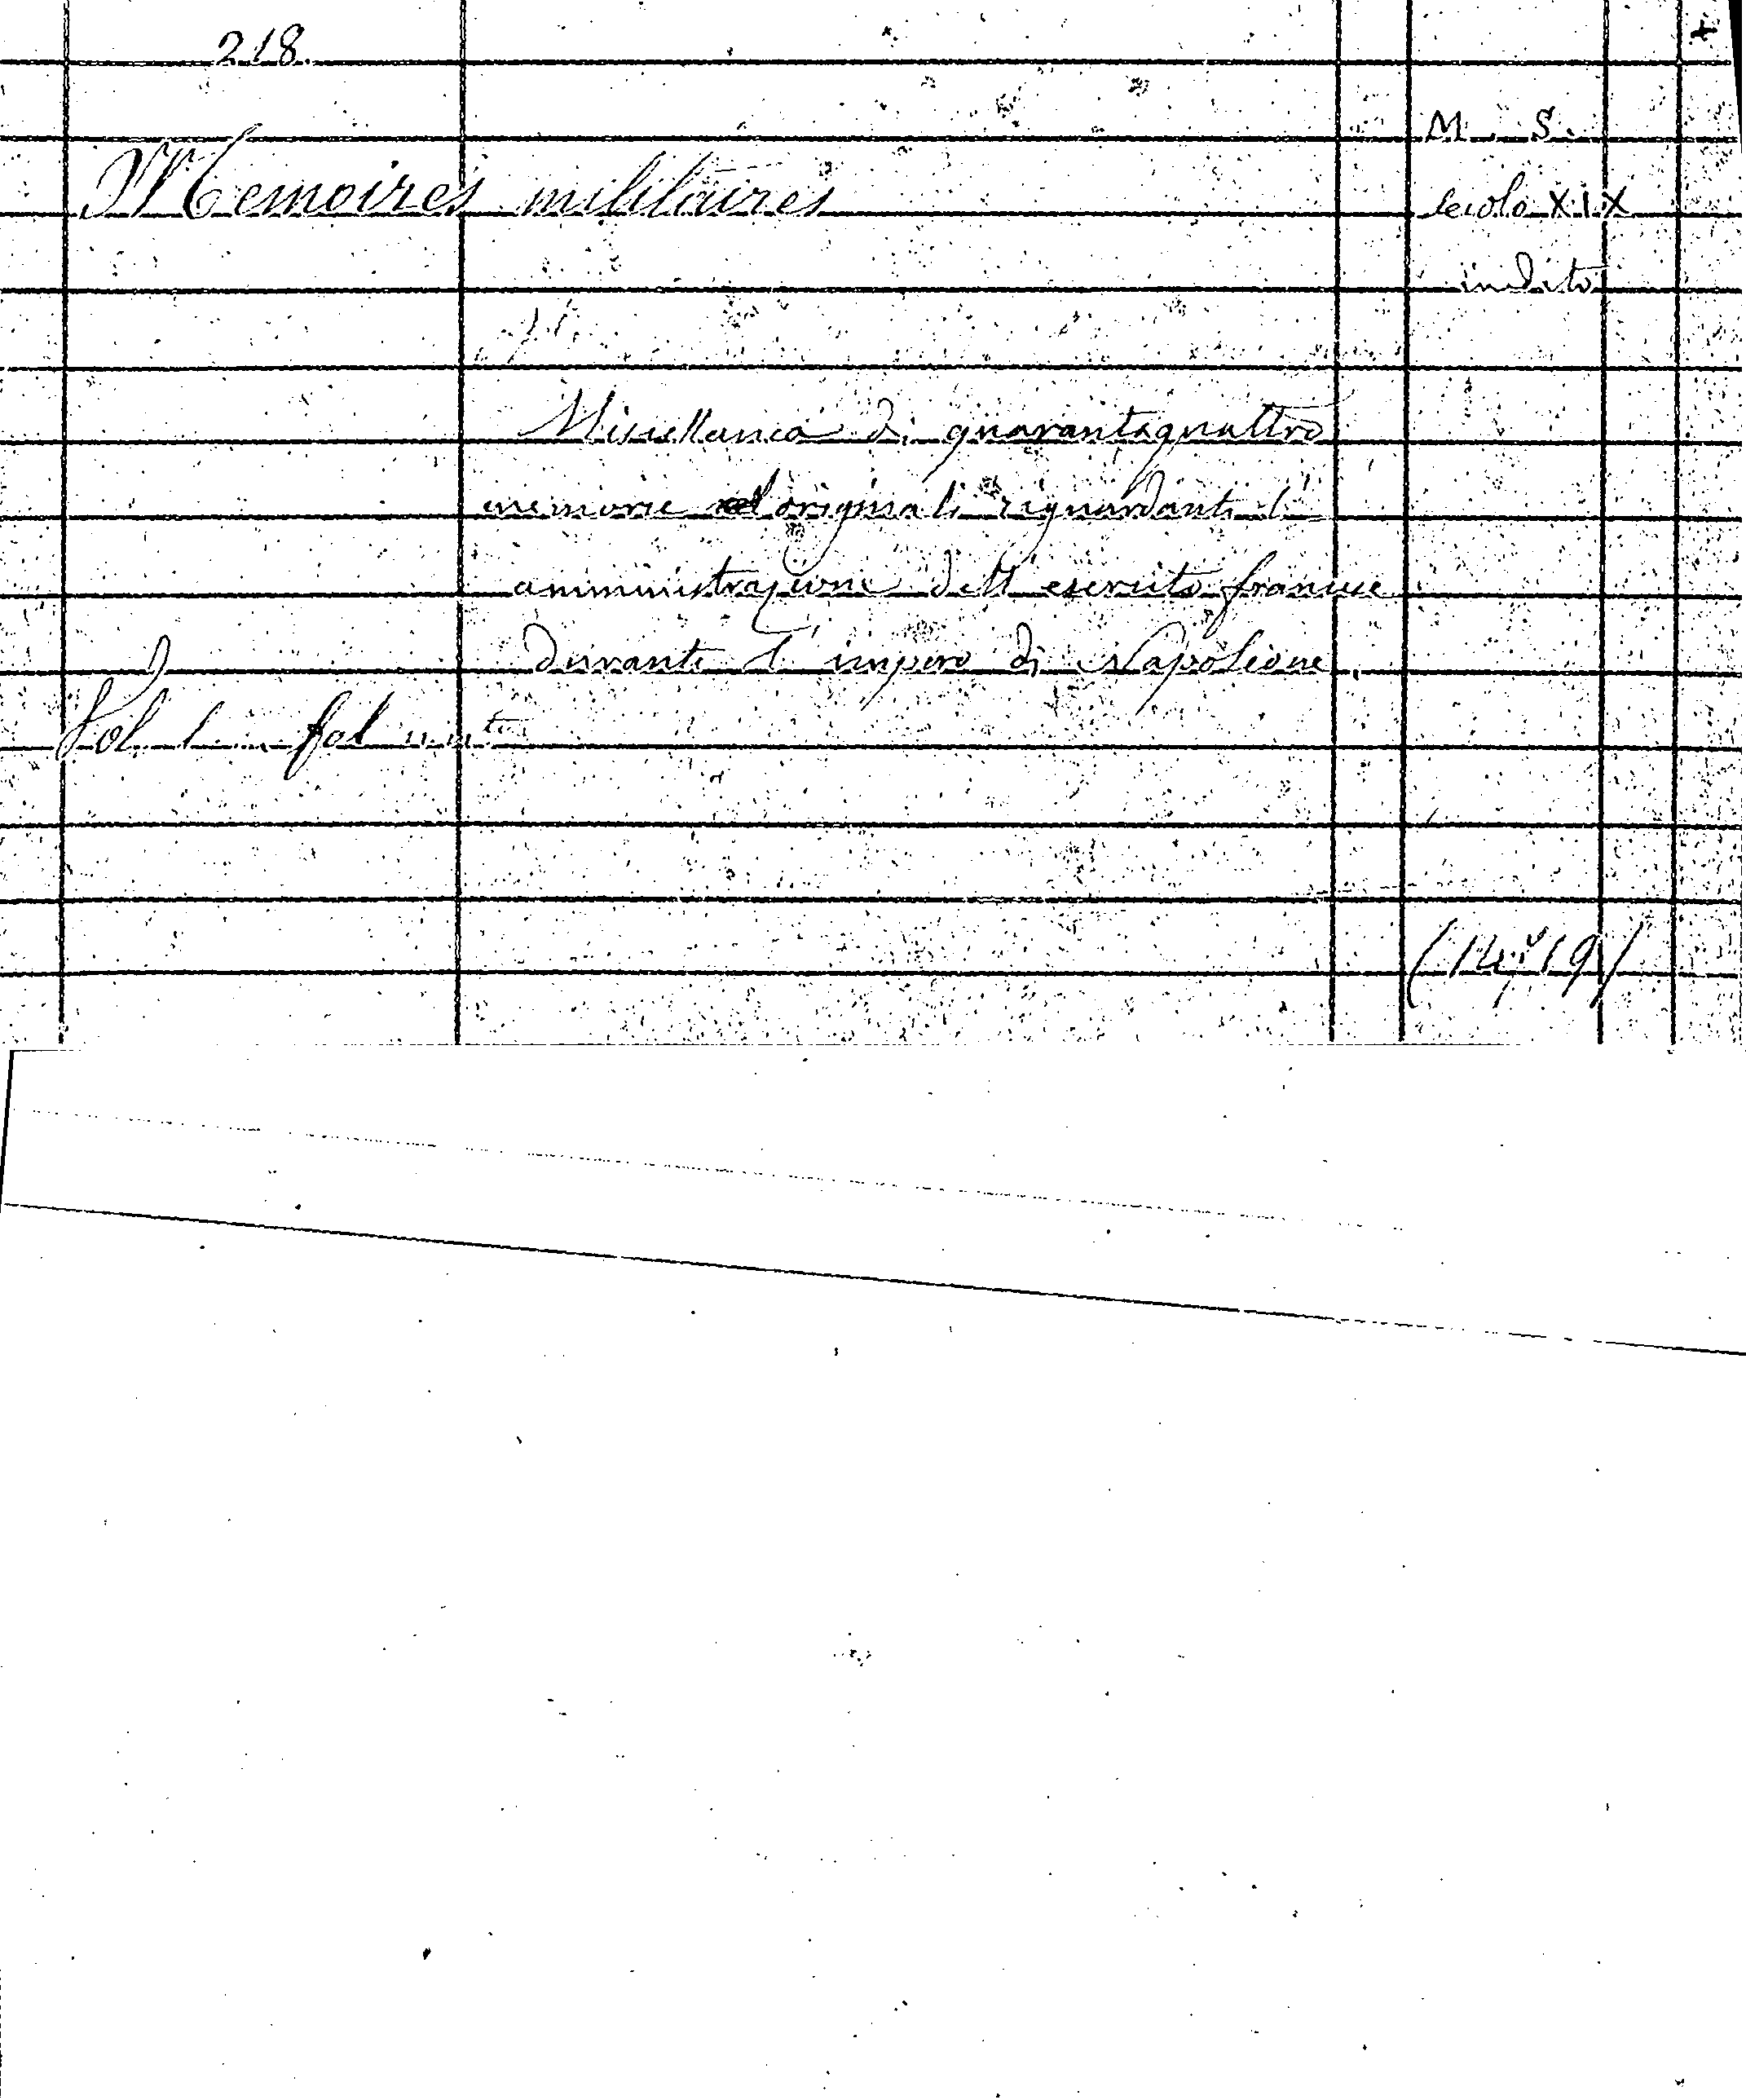 218.
M. S.
Memoires militaires
secolo XIX
inedito
Miscellanea di quarantaquattro
memorie originali riguardanti l'
amministrazione dell'esercito francese
durante l'impero di Napoleone.
Vol. 1 in fol